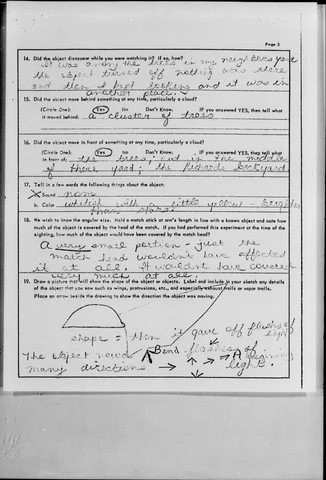 Page 3
14. Did the object disappear while you were watching it? If so, how?
It was among the trees in my neighbors yard
the object turned off nothing was there
and then I kept looking and it was in
another place.
15. Did the object move behind something at any time, particularly a cloud?
(Circle One): Yes No Don't Know. If you answered YES, then tell what
it moved behind: a cluster of trees
16. Did the object move in front of something at any time, particularly a cloud?
(Circle One): Yes No Don't Know. If you answered YES, then tell what
in front of: the trees, and in the middle
of there yard; the backyard
17. Tell in a few words the following things about the object:
a. Sound none
b. Color whitish with a little yellow - brighter
than stars
18. We wish to know the angular size. Hold a match stick at arm's length in line with a known object and note how
much of the object is covered by the head of the match. If you had performed this experiment at the time of the
sighting, how much of the object would have been covered by the match head?
A very small portion - just the
match head wouldn't have affected
it at all. It wouldnt have covered
very much at all.
19. Draw a picture that will show the shape of the object or objects. Label and include in your sketch any details
of the object that you saw such as wings, protrusions, etc., and especially exhaust trails or vapor trails.
Place an arrow beside the drawing to show the direction the object was moving.
shape = then it gave off flashes of
light
The object moved Bend flashes of
many directions A beginning
light.